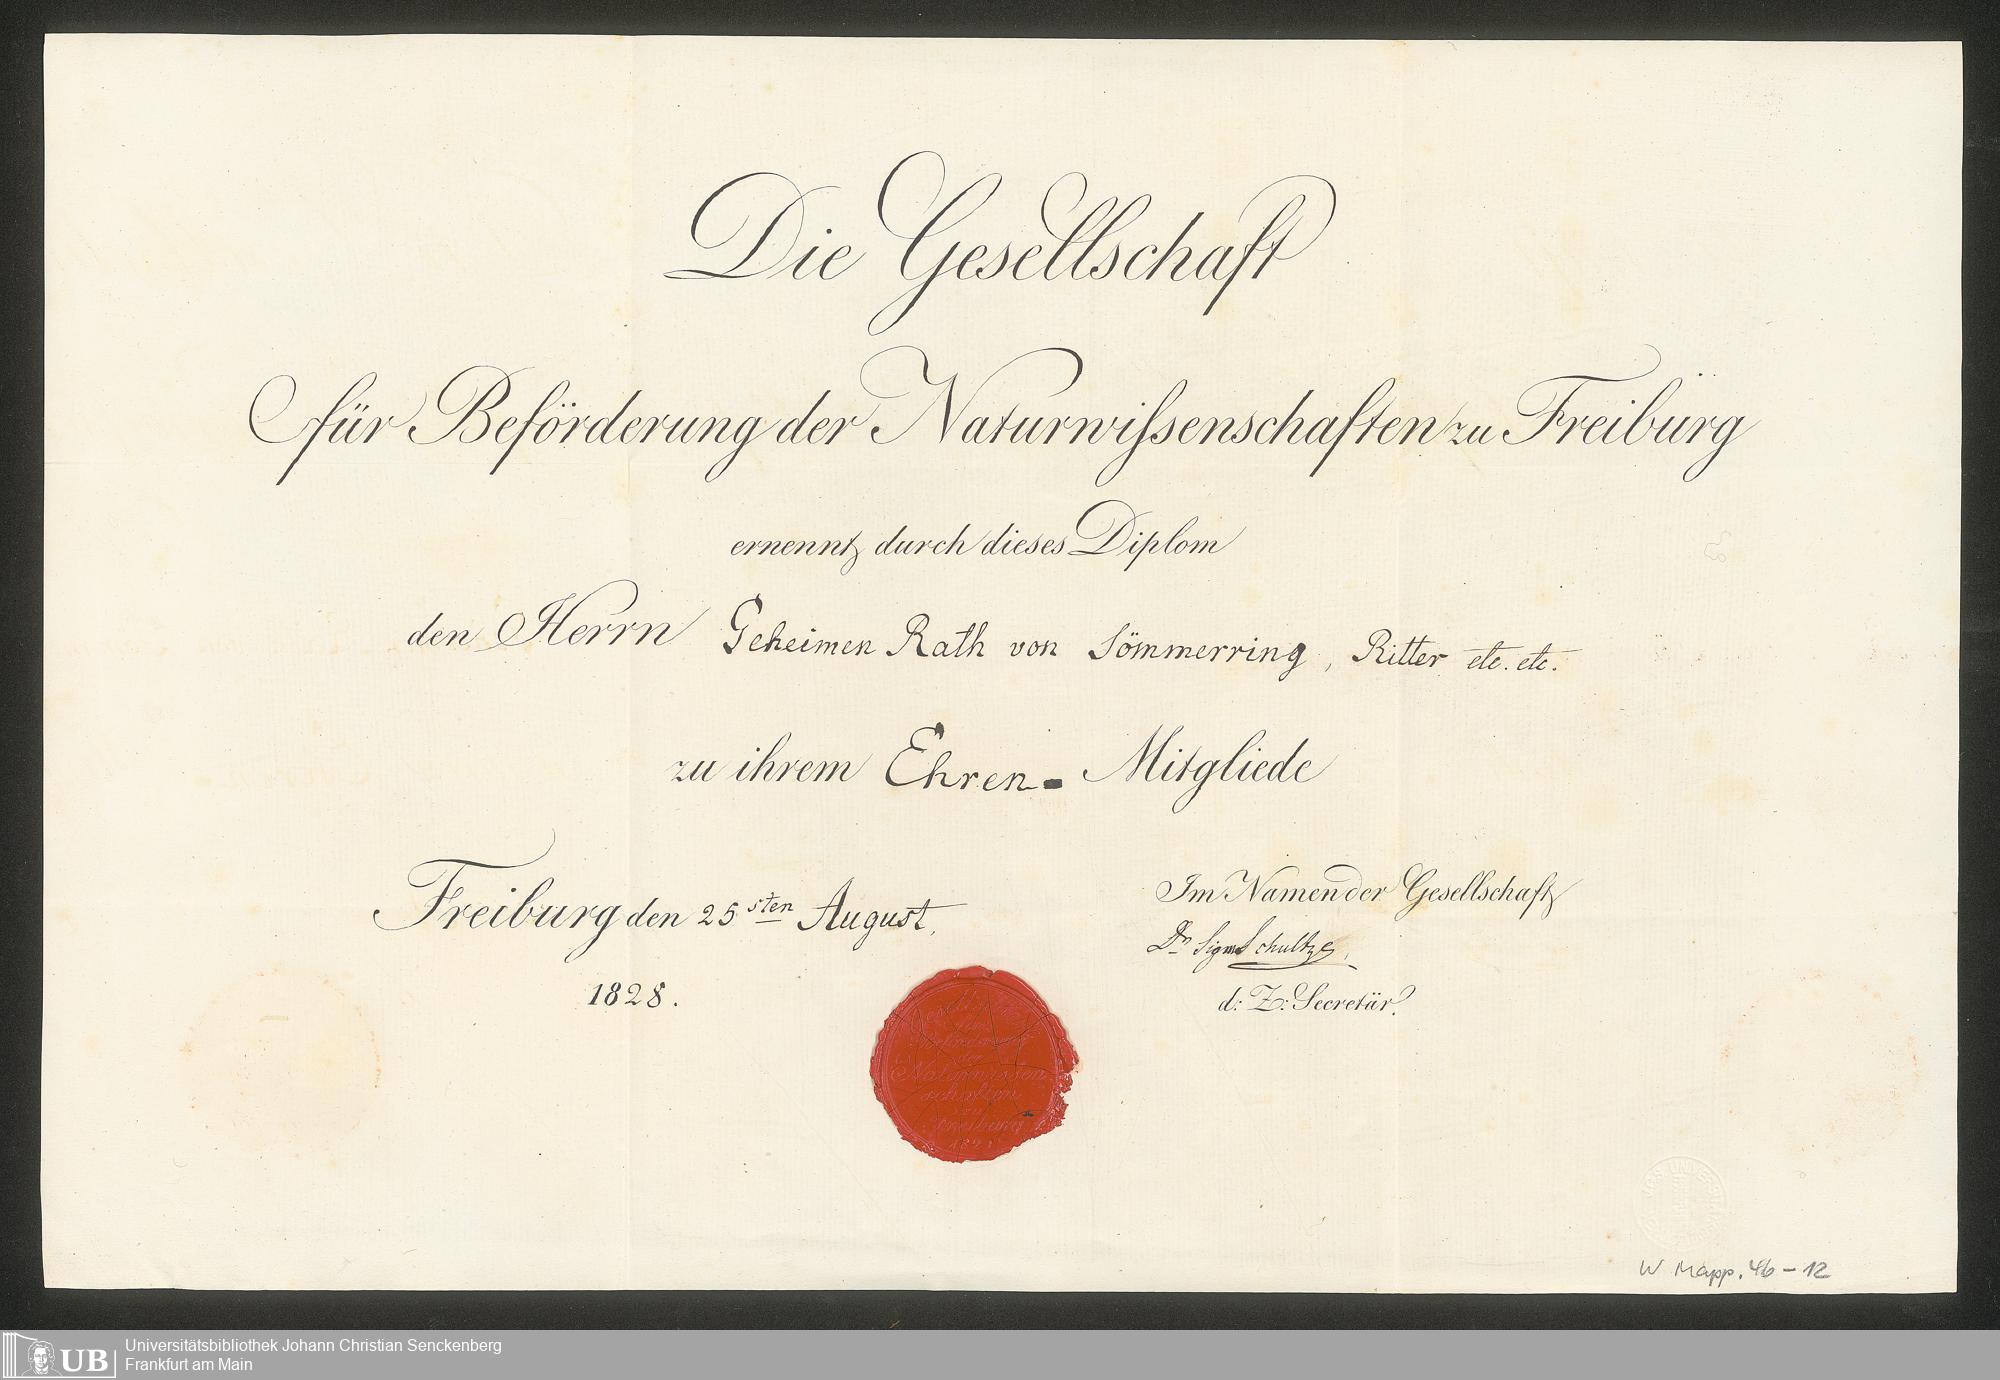 Die Gesellschaft
für Beförderung der Naturwiſsenschaften zu Freiburg
ernennt durch dieses Diplom
den Herrn Geheimen Rath von Sömmerring, Ritter etc. etc.
zu ihrem Ehren- Mitgliede
Freiburg den 25sten August,
1828.
Im Namen der Gesellschaft
Dr Sigm Schultze,
d: Z: Secretär.
Gesellschaft
für
Beförderung
der
Naturwissen
schaften
zu
Freiburg
1821
W Mapp. 46-12
UB
Universitätsbibliothek Johann Christian Senckenberg
Frankfurt am Main